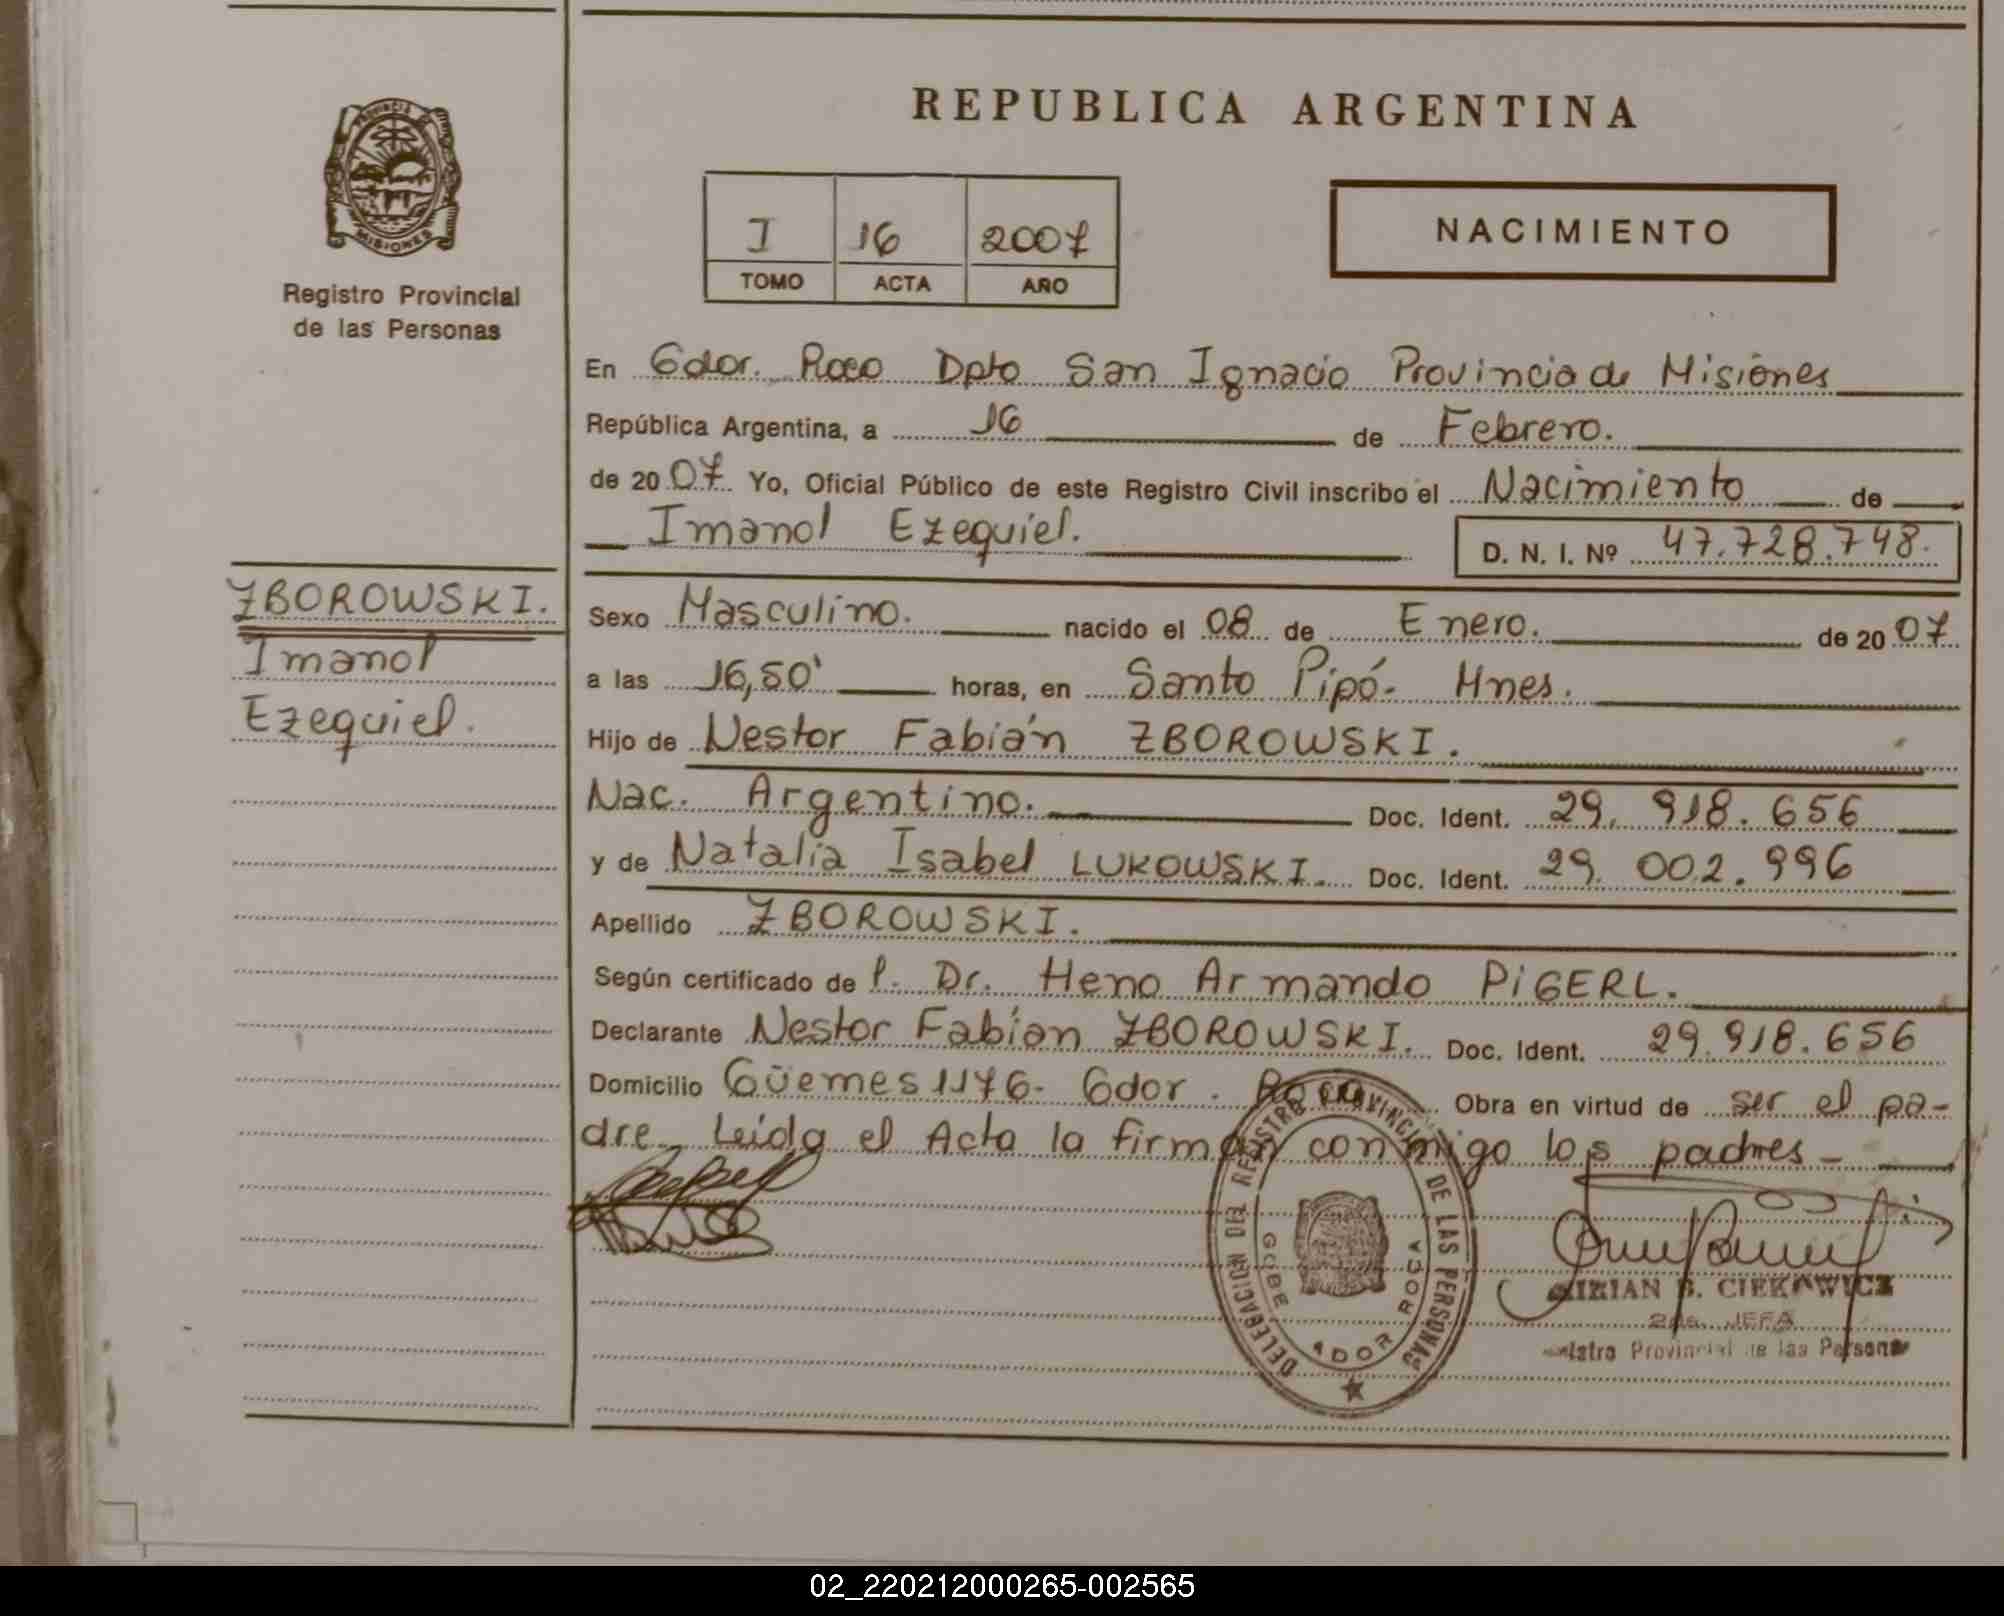 REPUBLICA ARGENTINA
PROVINCIA DE
MISIONES
Registro Provincial
de las Personas
I 16 2007
TOMO ACTA AÑO
NACIMIENTO
En Gdor. Roca Dpto San Ignacio Provincia de Misiones
República Argentina, a 16 de Febrero.
de 2007 Yo, Oficial Público de este Registro Civil inscribo el Nacimiento de
Imanol Ezequiel.
D. N. I. Nº 47.728.748.
ZBOROWSKI.
Imanol
Ezequiel.
Sexo Masculino. nacido el 08 de Enero. de 2007.
a las 16,50' horas, en Santo Pipó- Mnes.
Hijo de Nestor Fabián ZBOROWSKI.
Nac. Argentino. Doc. Ident. 29. 918. 656
y de Natalia Isabel LUKOWSKI. Doc. Ident. 29. 002. 996
Apellido ZBOROWSKI.
Según certificado de P. Dr. Heno Armando PIGERL.
Declarante Nestor Fabián ZBOROWSKI. Doc. Ident. 29.918.656
Domicilio Güemes 1176- Gdor. Roca Obra en virtud de ser el pa-
dre_ Leida el Acta la firman conmigo los padres -
DELEGACION DEL REGISTRO PROVINCIAL DE LAS PERSONAS
GOBERNADOR ROCA
MIRIAN B. CIEKOWICZ
2da. JEFA
Registro Provincial de las Personas
02_220212000265-002565